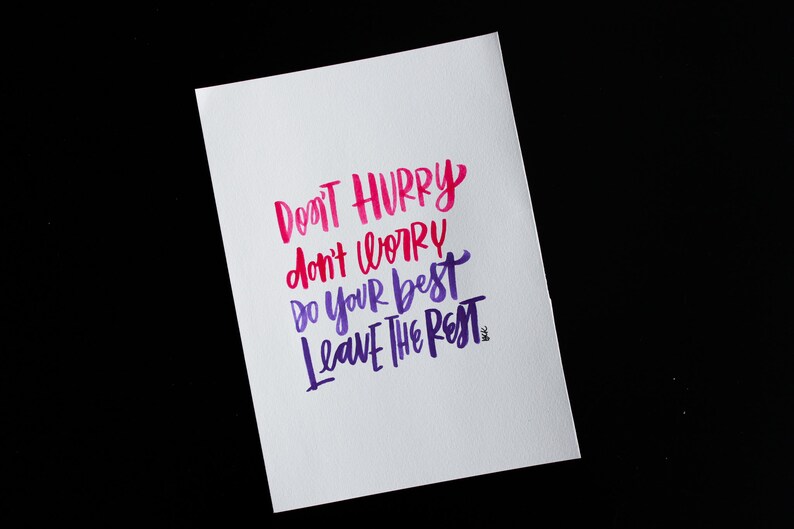 DON'T HURRY
don't WORRY
DO YOUR best
LEAVE THE REST